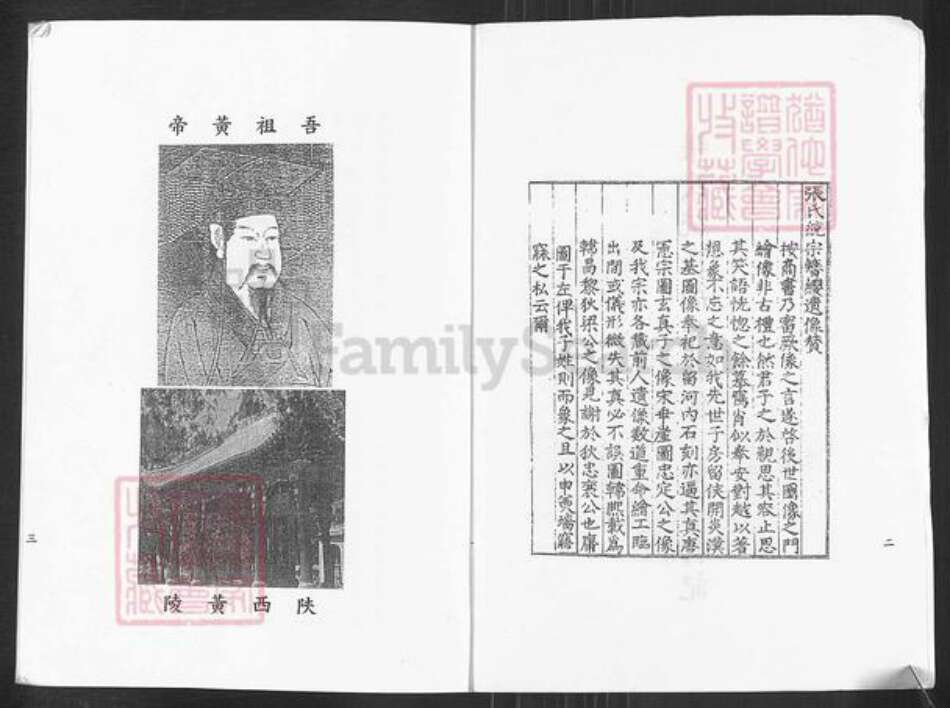 張氏統宗簪纓遺像贊
按商書乃審厥像之言遂啓後世圖像之門
繪像非古禮也然君子之於親思其容止思
其笑語恍惚之餘慕鴈肖似奉安對越以著
想慕不忘之意如我先世子房留侯開炎漢
之基圖像奉祀於留河內石刻亦逼其真唐
憲宗圖玄真子之像宋乖崖圖忠定公之像
及我宗亦各藏前人遺像數道重命繪工臨
出間或儀形微失其真必不誤圖韓熙載為
韓昌黎狄梁公之像見謝於狄忠襄公也廨
圖于左俾我子姓則而象之且以申寅墻
寐之私云爾
二
吾祖黃帝
陝西黃陵
三
猶他州
譜學會
收藏
FamilyS